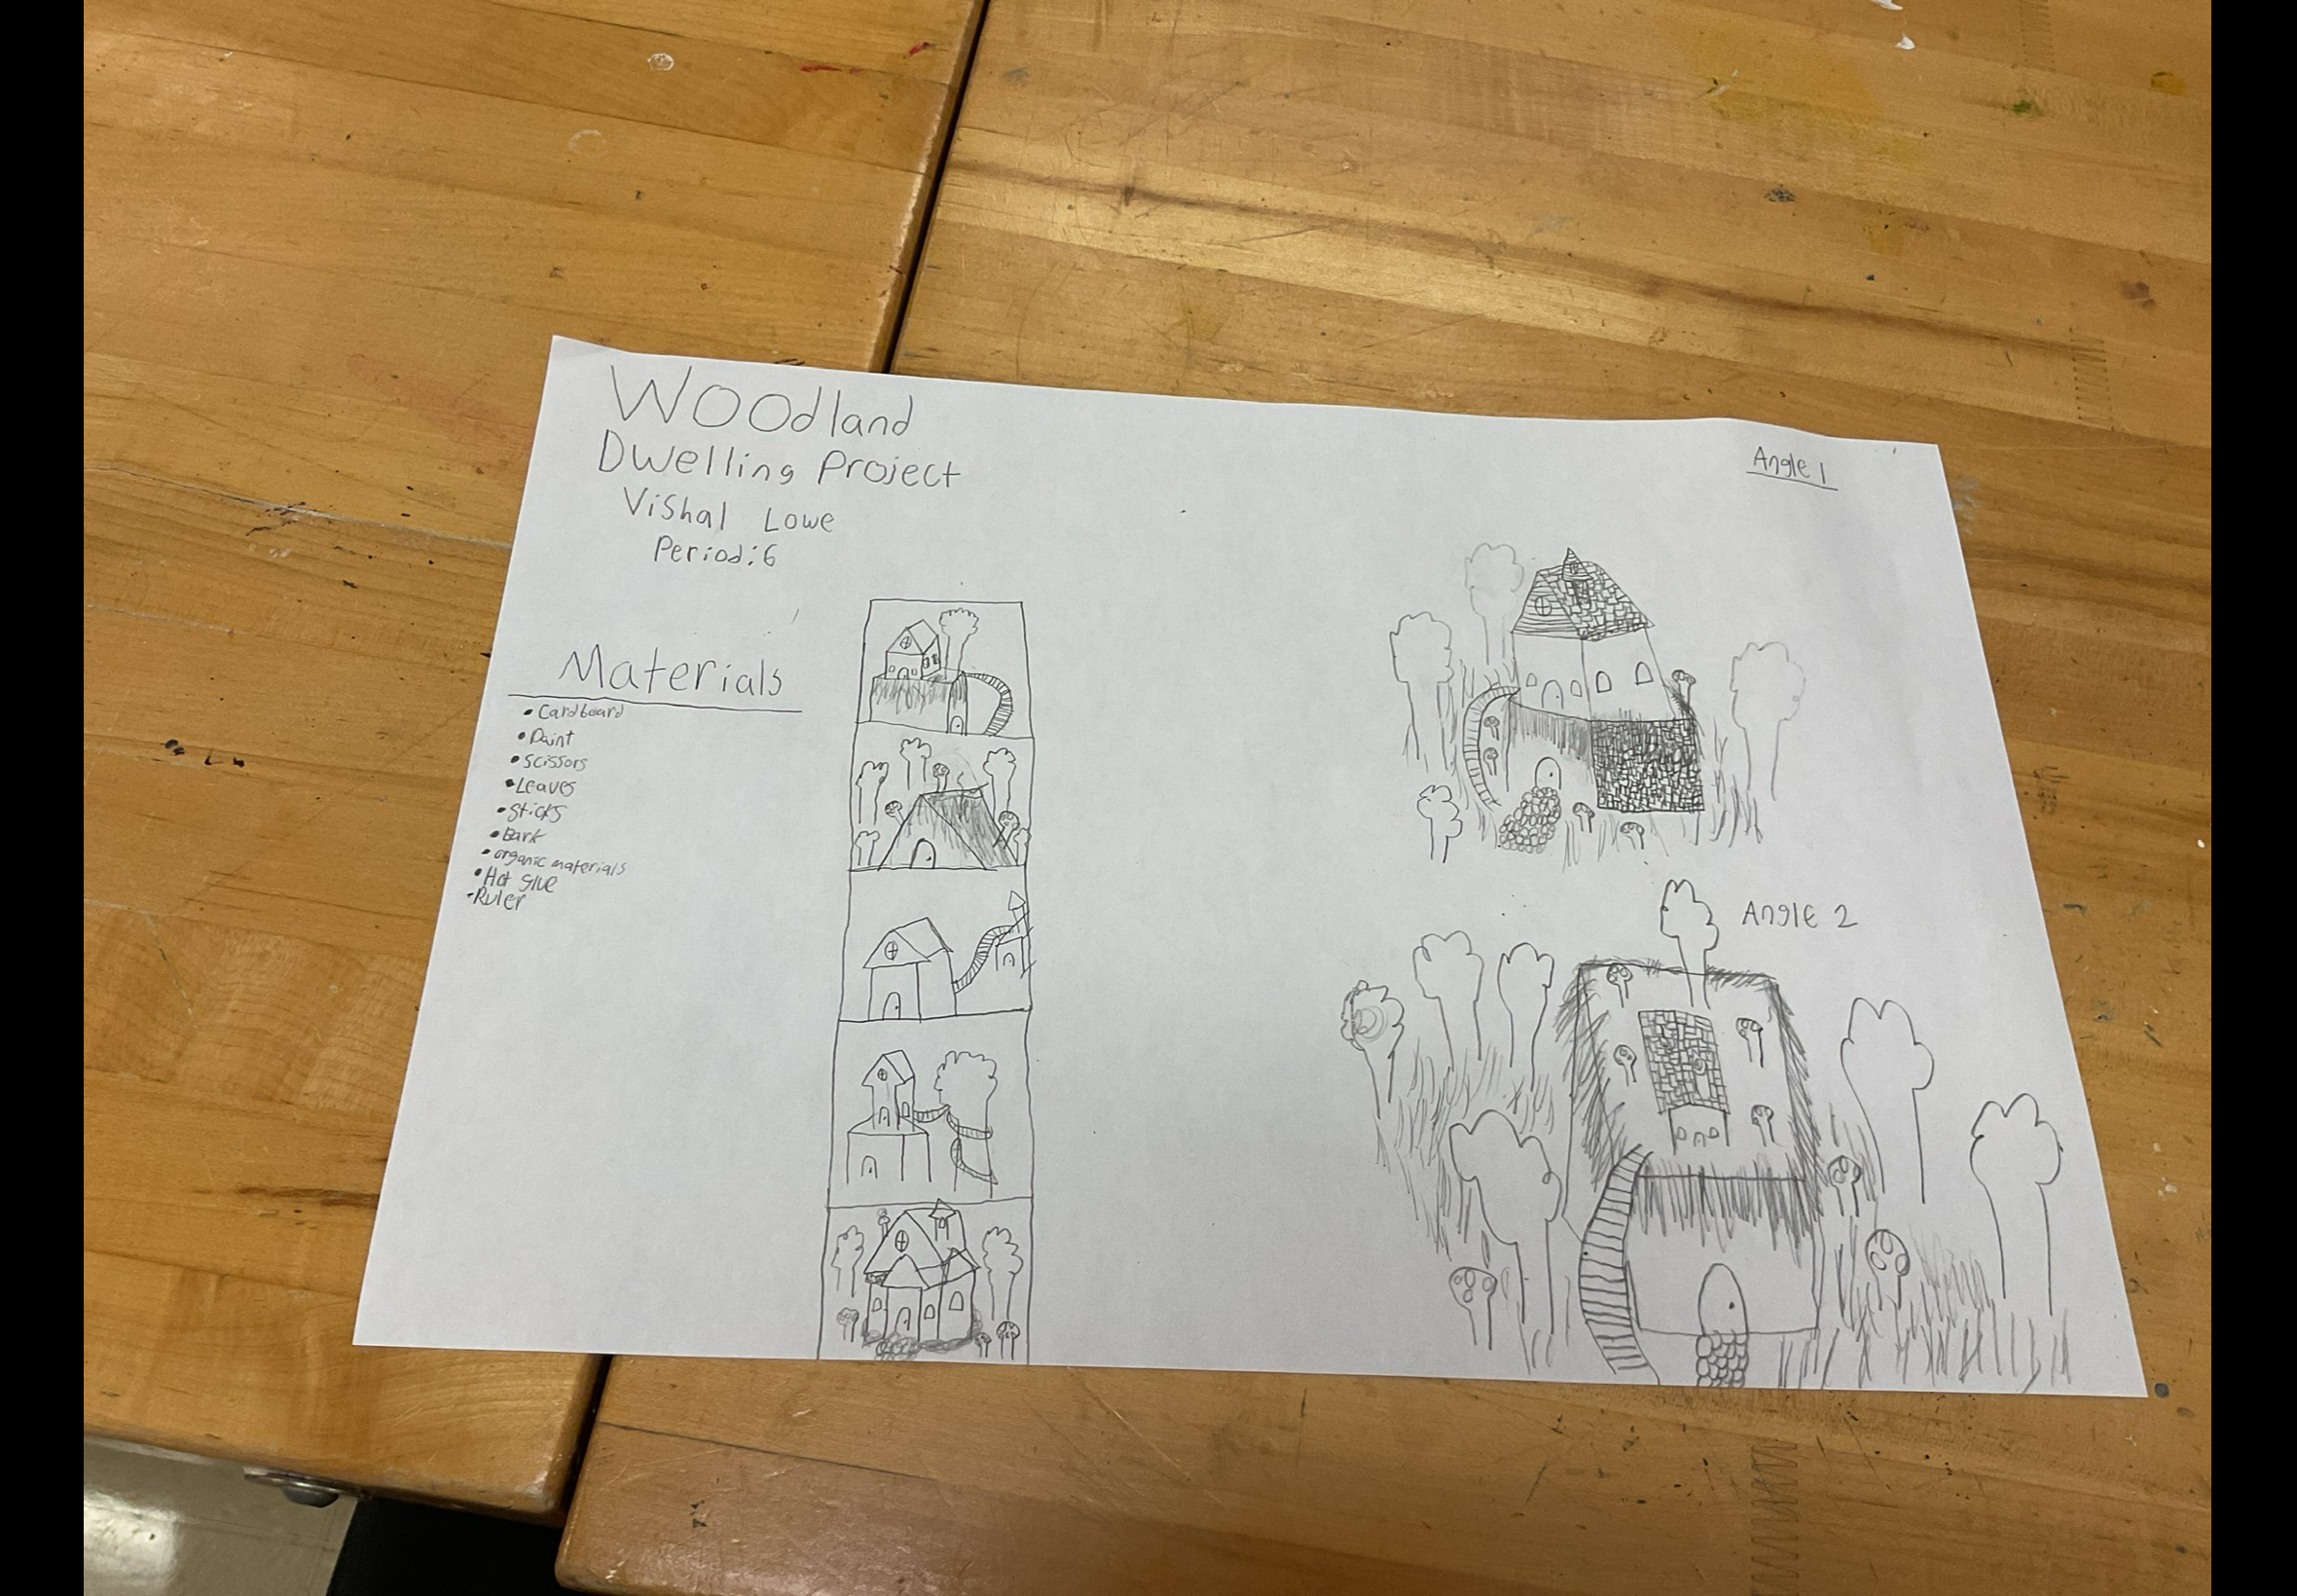 Woodland
Dwelling Project
Vishal Lowe
Period:6
Materials
• Cardboard
• Paint
• Scissors
• Leaves
• Sticks
• Bark
• organic materials
• Hot Glue
-Ruler
Angle 1
Angle 2